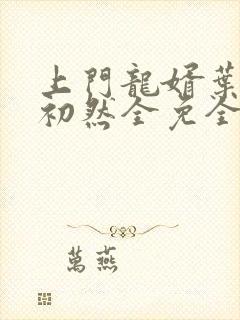 上門龍婿葉
初然全免全
萬燕